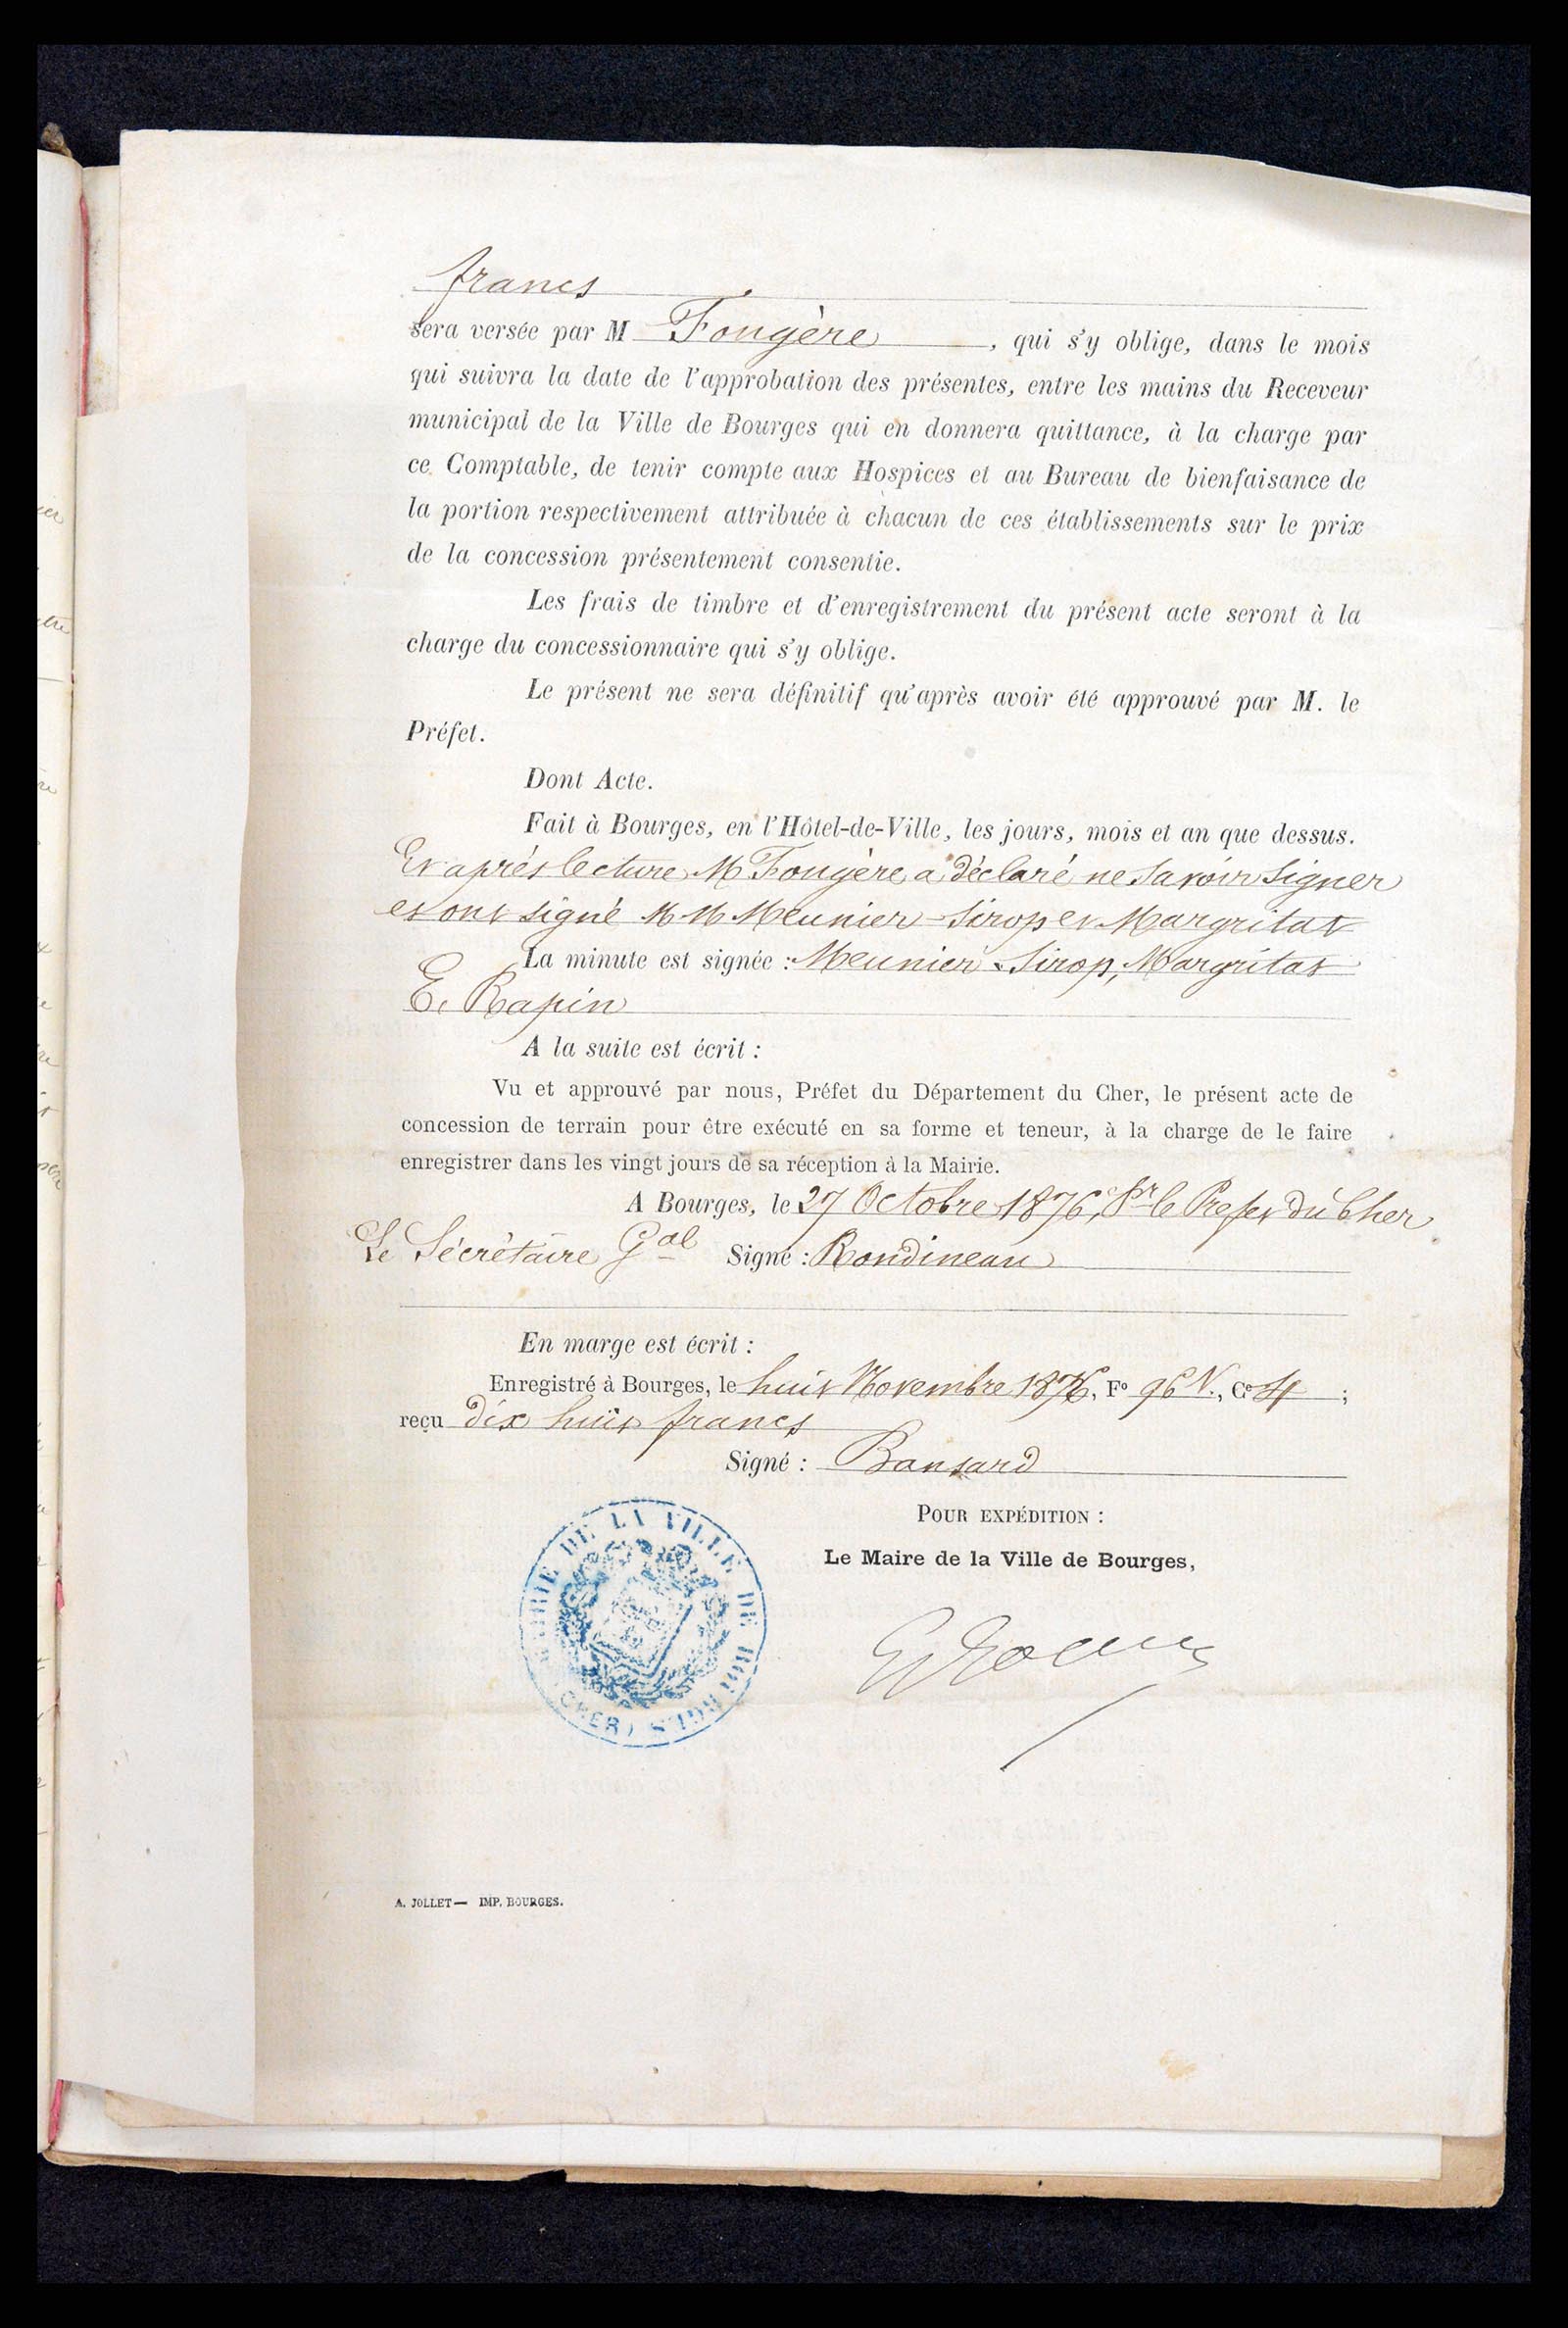 francs
sera versée par M Fougère, qui s'y oblige, dans le mois
qui suivra la date de l'approbation des présentes, entre les mains du Receveur
municipal de la Ville de Bourges qui en donnera quittance, à la charge par
ce Comptable, de tenir compte aux Hospices et au Bureau de bienfaisance de
la portion respectivement attribuée à chacun de ces établissements sur le prix
de la concession présentement consentie.
Les frais de timbre et d'enregistrement du présent acte seront à la
charge du concessionnaire qui s'y oblige.
Le présent ne sera définitif qu'après avoir été approuvé par M. le
Préfet.
Dont Acte.
Fait à Bourges, en l'Hôtel-de-Ville, les jours, mois et an que dessus.
Et après lecture M Fougère a déclaré ne savoir signer
et ont signé M M Meunier-Sirop et Margritat
La minute est signée : Meunier-Sirop, Margritat
E. Rapin
A la suite est écrit :
Vu et approuvé par nous, Préfet du Département du Cher, le présent acte de
concession de terrain pour être exécuté en sa forme et teneur, à la charge de le faire
enregistrer dans les vingt jours de sa réception à la Mairie.
A Bourges, le 27 Octobre 1876, Pr le Préfet du Cher
Le Sécrétaire Gal Signé : Rondineau
En marge est écrit :
Enregistré à Bourges, le huit Novembre 1876, F° 96 V., C° 4 ;
reçu dix huit francs
Signé : Bansard
POUR EXPÉDITION :
Le Maire de la Ville de Bourges,
MAIRIE DE LA VILLE DE BOURGES
(CHER)
A. JOLLET — IMP. BOURGES.